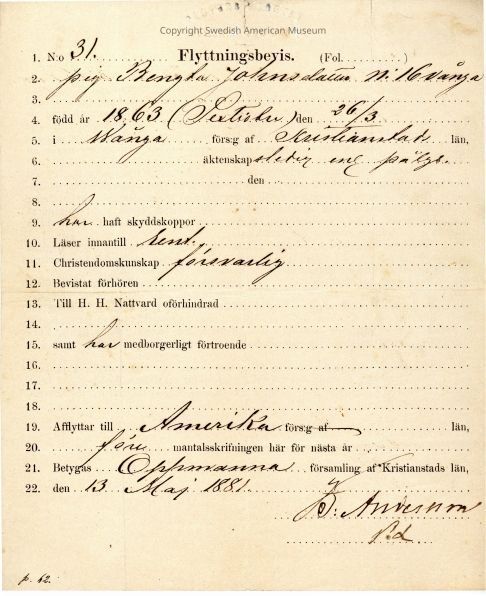 Copyright Swedish American Museum
1. No 31. Flyttningsbevis. (Fol. )
2. pig. Bengta Johnsdotter N. 16 Vånga
3.
4. född år 1863 ( ) den 26/3
5. i Wånga förs:g af Kristianstad län,
6. äktenskap ledig enl.
7. den
8.
9. har haft skyddskoppor
10. Läser innantill rent.
11. Christendomskunskap försvarlig
12. Bevistat förhören
13. Till H. H. Nattvard oförhindrad
14.
15. samt har medborgerligt förtroende
16.
17.
18.
19. Afflyttar till Amerika förs:g af län,
20. före mantalsskrifningen här för nästa år
21. Betygas Oppmanna församling af Kristianstads län,
22. den 13 Maj 1881.
Andersson
p. 62.